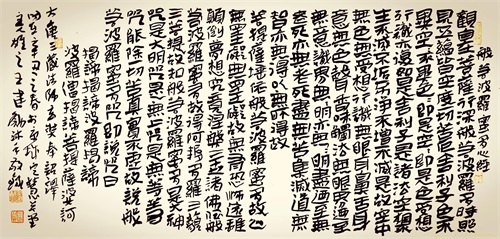 般若波羅蜜多心經
觀自在菩薩行深般若波羅蜜多時照
見五蘊皆空度一切苦厄舍利子色不
異空空不異色色即是空空即是色受想
行識亦復如是舍利子是諸法空相不
生不滅不垢不淨不增不減是故空中
無色無受想行識無眼耳鼻舌身
意無色聲香味觸法無眼界乃至無
意識界無無明亦無無明盡乃至無
老死亦無老死盡無苦集滅道無
智亦無得以無所得故
菩提薩埵依般若波羅蜜多故心
無罣礙無罣礙故無有恐怖遠離
顛倒夢想究竟涅槃三世諸佛依般
若波羅蜜多故得阿耨多羅三藐
三菩提故知般若波羅蜜多是大神
咒是大明咒是無上咒是無等等
咒能除一切苦真實不虛故說般
若波羅蜜多咒即說咒曰
揭諦揭諦波羅揭諦
波羅僧揭諦菩提薩婆訶
大唐三藏法師玄奘奉詔譯
辛丑之春
王建